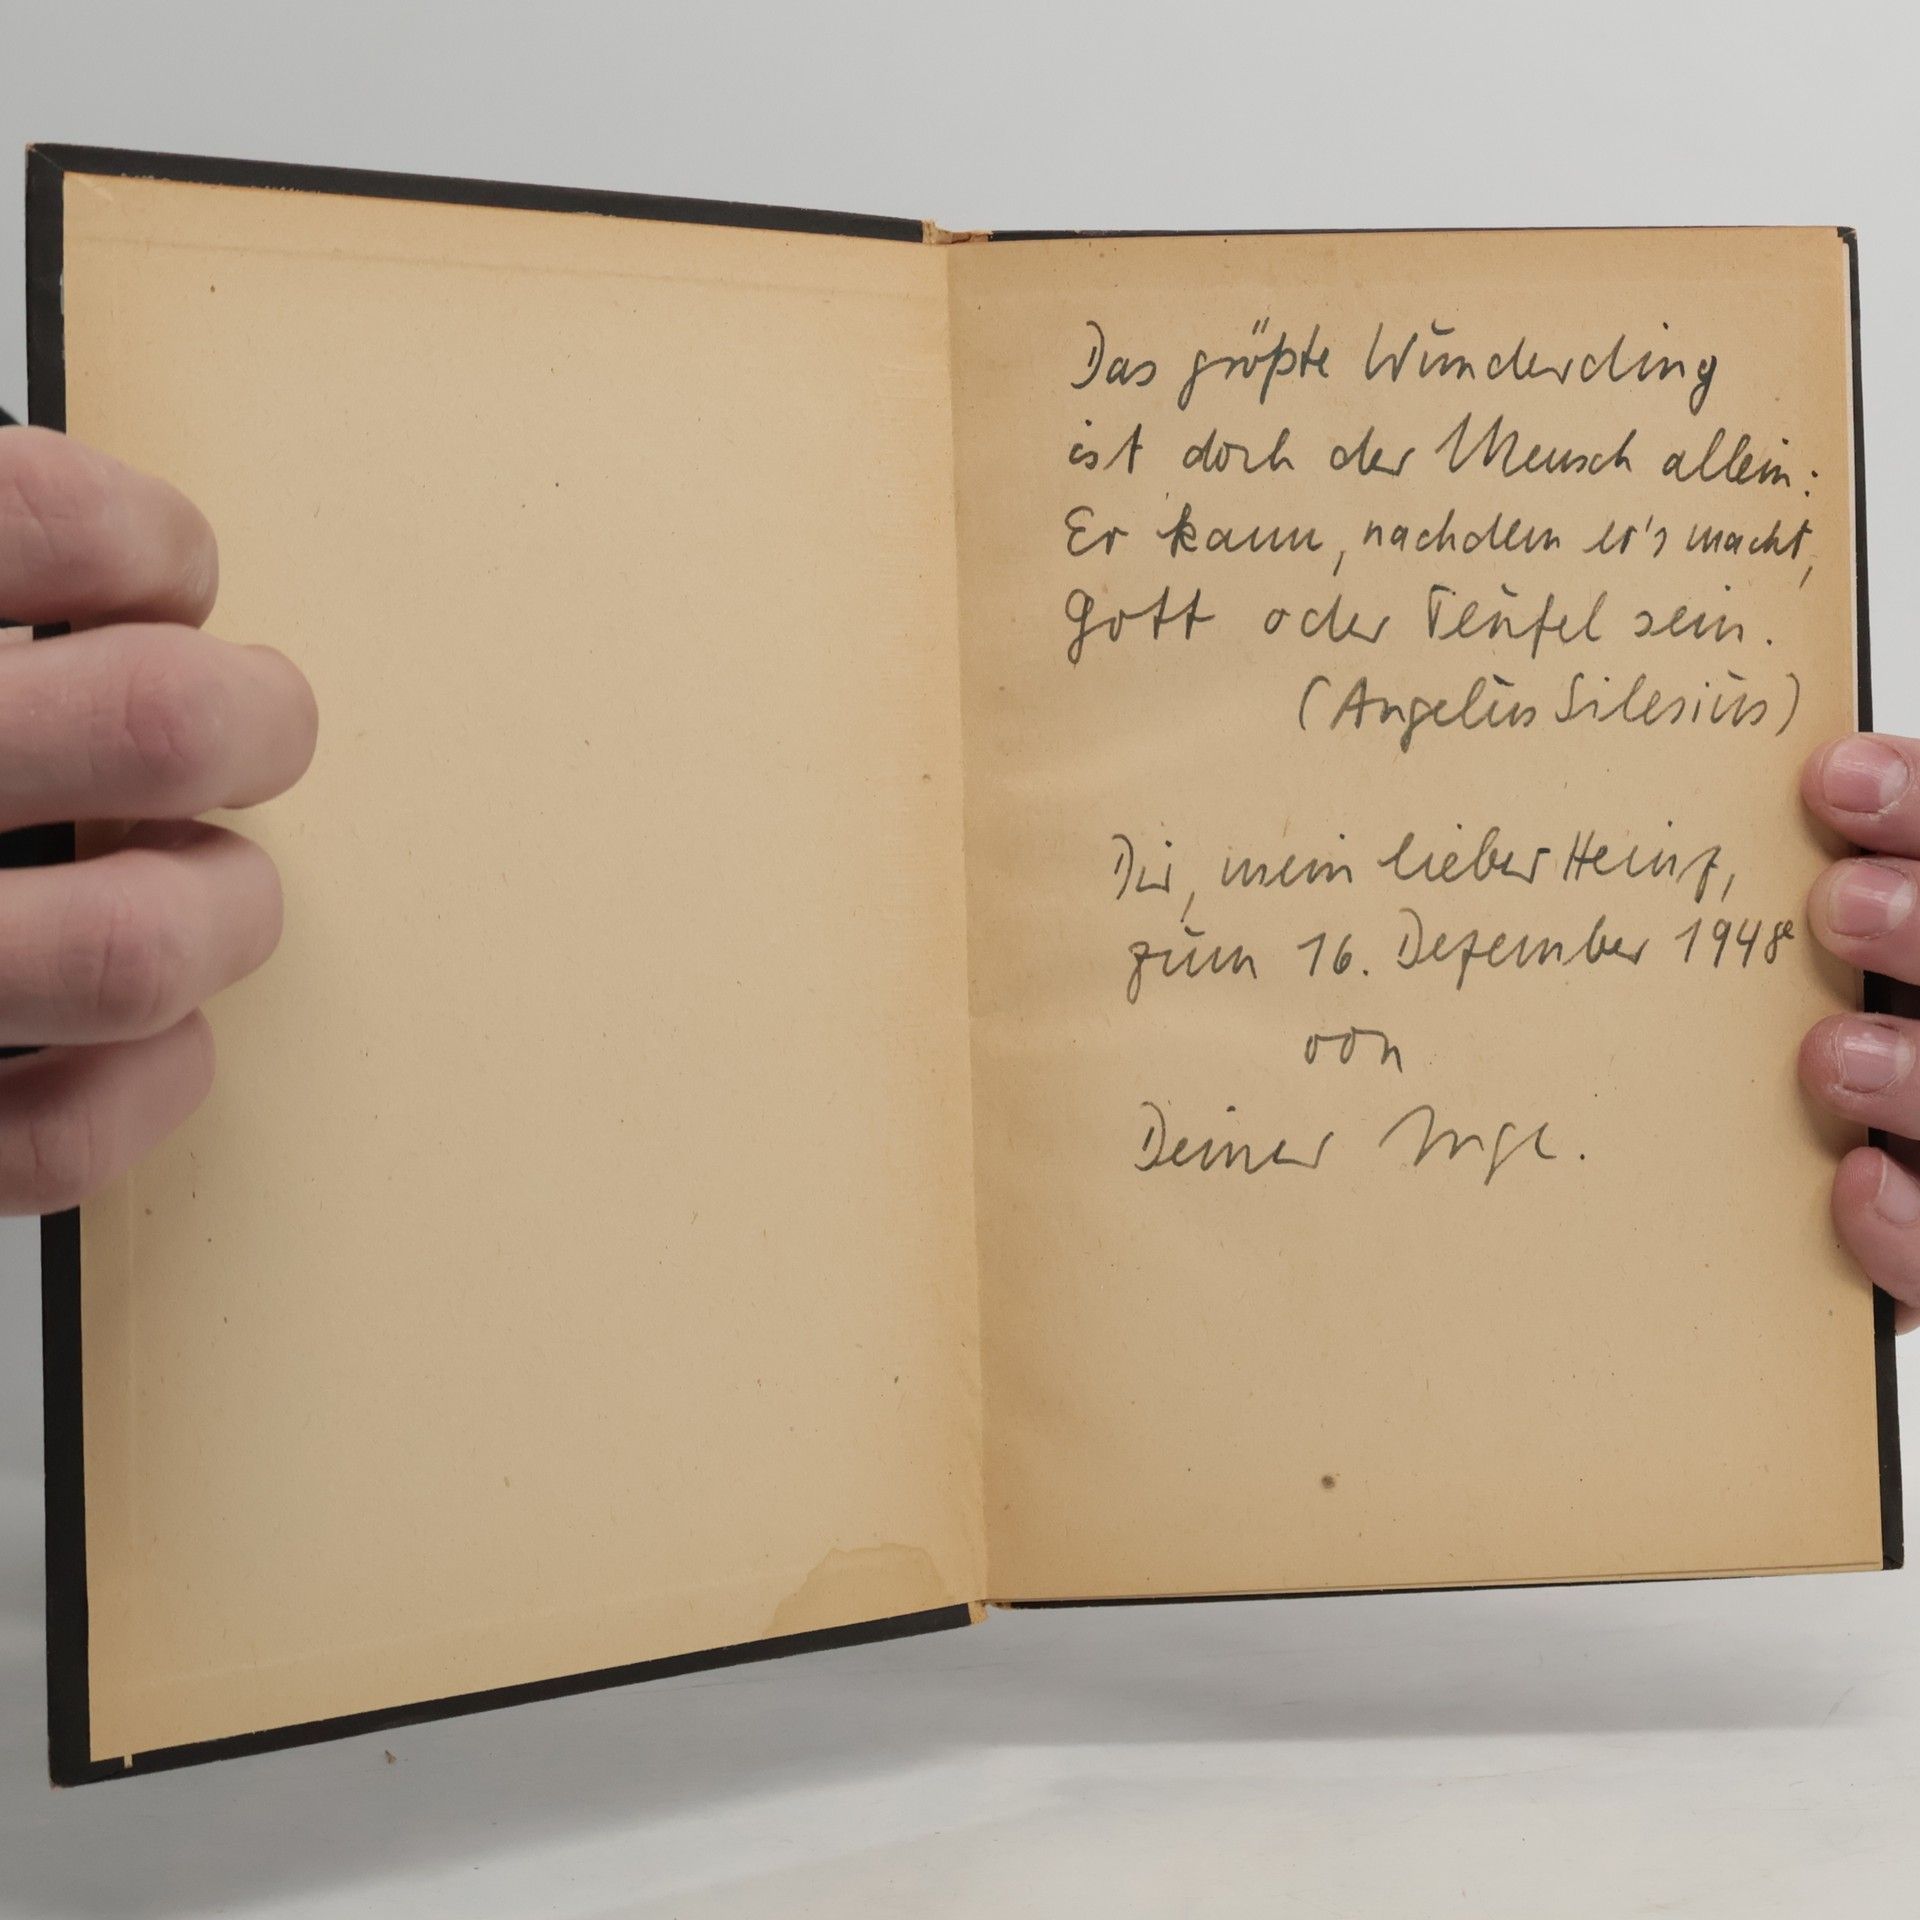 Das größte Wunderding
ist doch der Mensch allein:
Er kann, nachdem er's macht,
Gott oder Teufel sein.
(Angelus Silesius)
Dir, mein lieber Heinz,
zum 16. Dezember 1948
von
Deiner Inge.